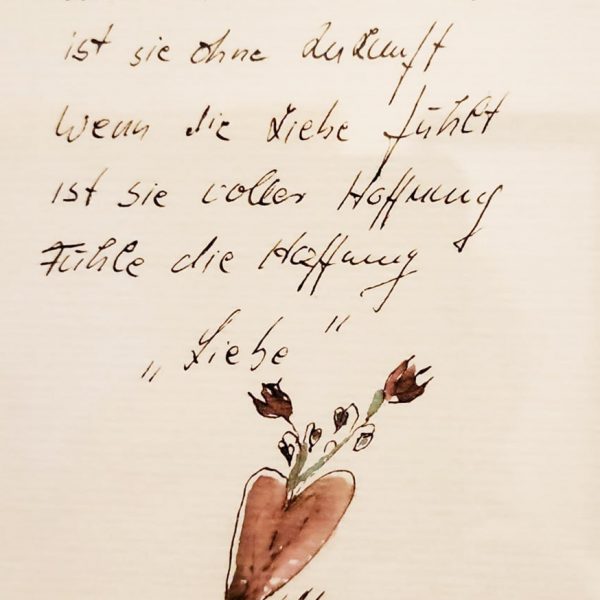 ist sie ohne Zukunft
Wenn die Liebe fühlt
ist sie voller Hoffnung
Fühle die Hoffnung
„Liebe"